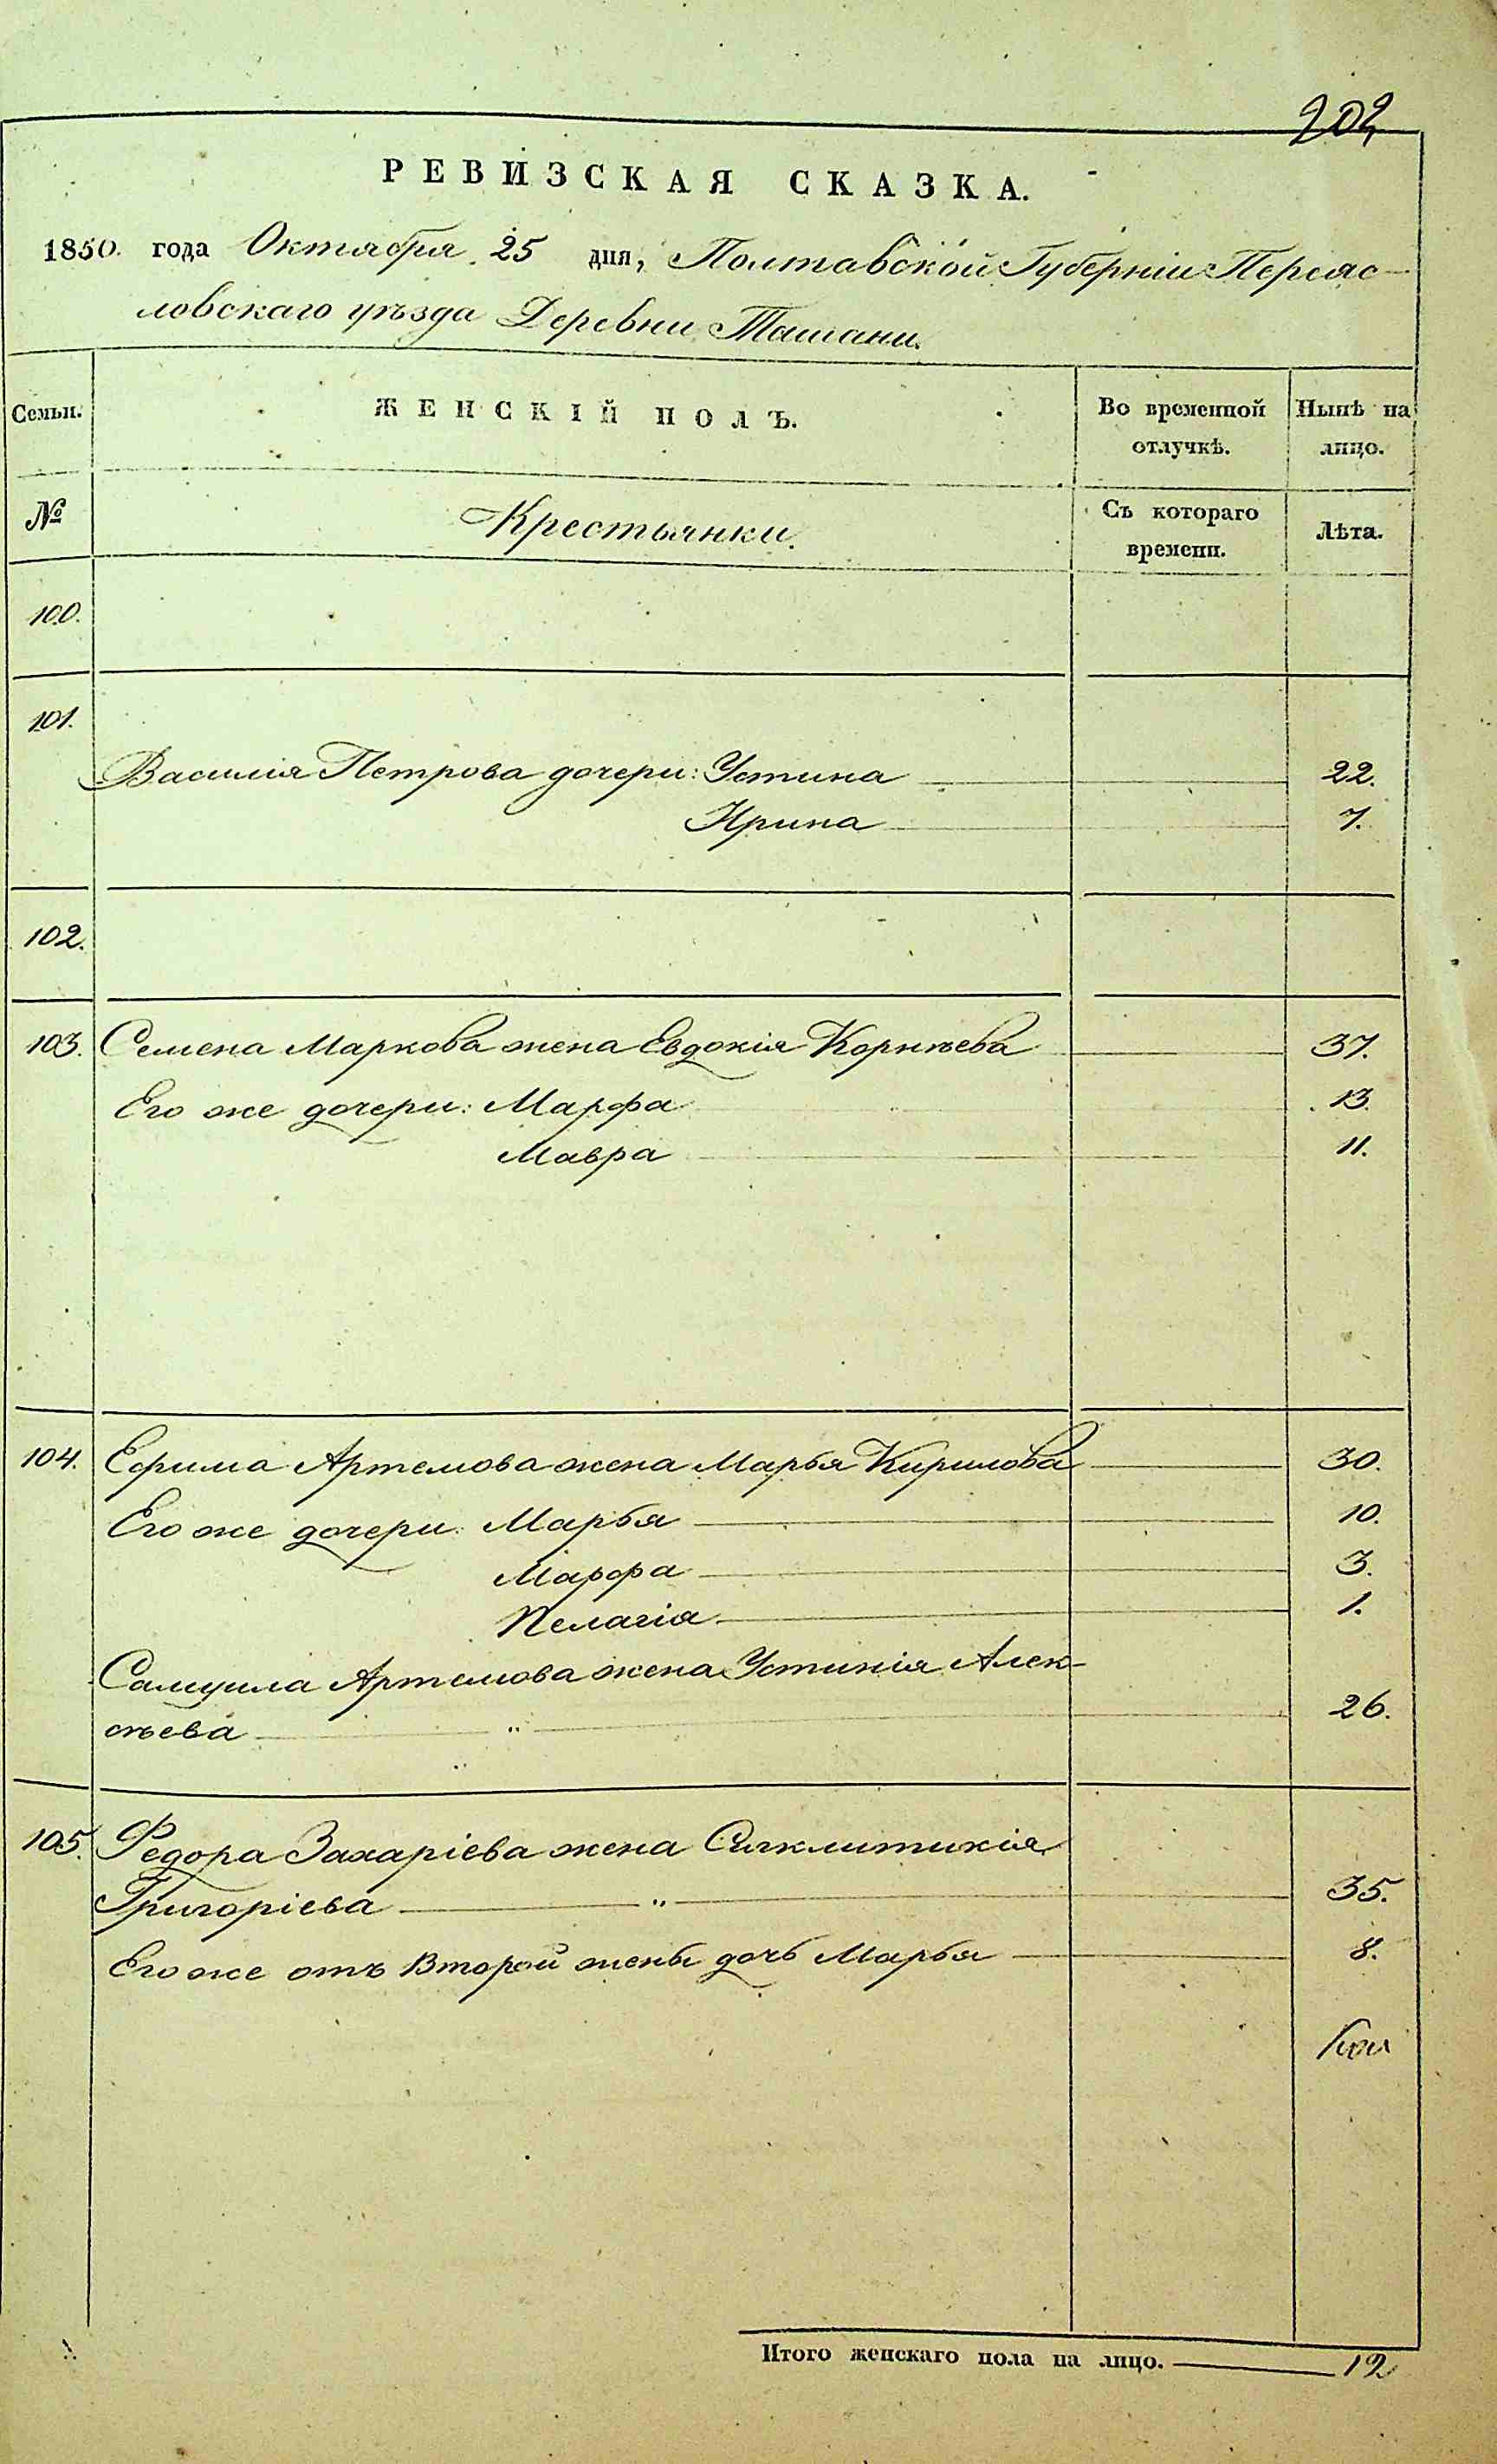 202
РЕВИЗСКАЯ СКАЗКА.
1850. года Октября 25 дня, Полтавской Губерніи Переяс-
ловскаго уѣзда Деревни Ташани.
Семьи. ЖЕНСКІЙ ПОЛЪ. Во временной отлучкѣ. Нынѣ на лицо.
№ Крестьянки. Съ котораго времени. Лѣта.
100.
101.
Василія Петрова дочери: Устина 22.
Ирина 7.
102.
103. Семена Маркова жена Евдокія Корнѣева 37.
Его же дочери: Марфа 13.
Мавра 11.
104. Ефима Артемова жена Марья Кирилова 30.
Его же дочери: Марья 10.
Марфа 3.
Пелагія 1.
Самуила Артемова жена Устинія Алек-
сѣева " 26.
105. Федора Захаріева жена Сикклитикія
Григоріева " 35.
Его же отъ Второй жены дочь Марья 8.
Итого женскаго пола на лицо. 12